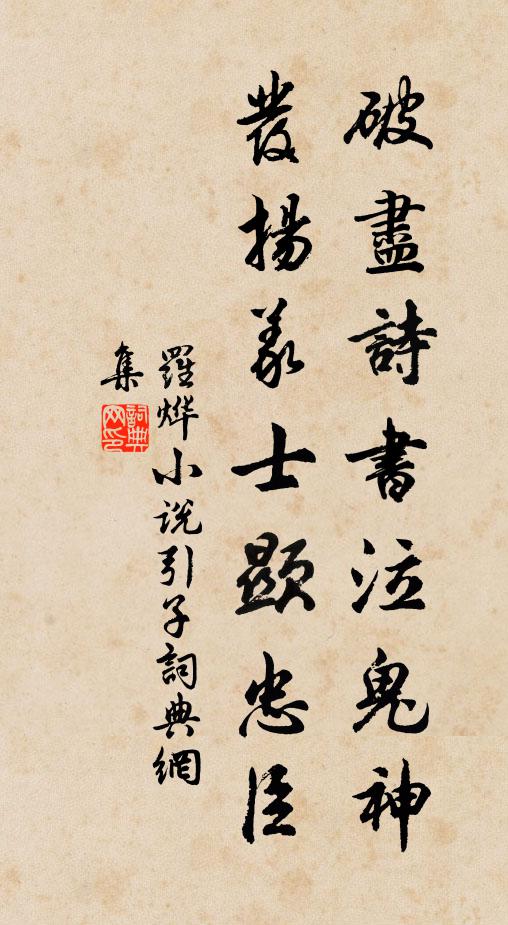 破盡詩書泣鬼神
發揚義士顯忠臣
羅烨小说引子詞典網
集
詞典
网印